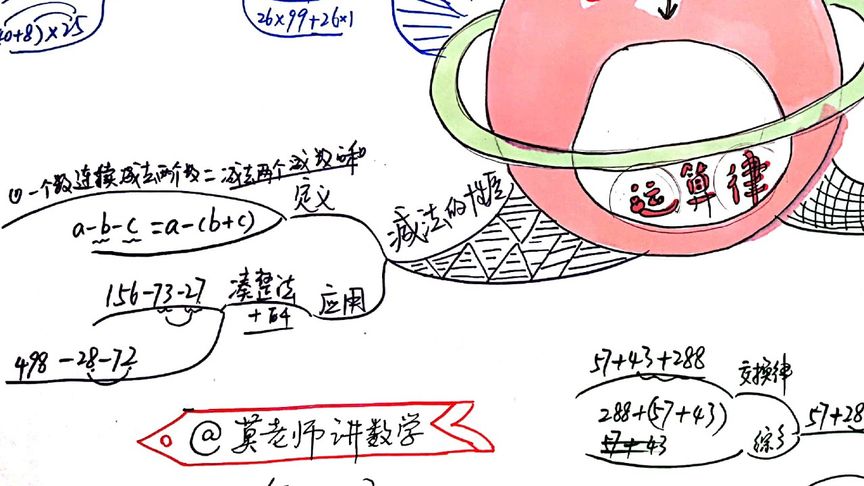 0+8)×25
26×99+26×1
运算律
① 一个数连续减去两个数=减去两个减数的和
定义
a-b-c=a-(b+c)
减法的性质
156-73-27
凑整法
应用
498-28-72
@莫老师讲数学
57+43+288
交换律
288+(57+43)
57+43
综合
57+28